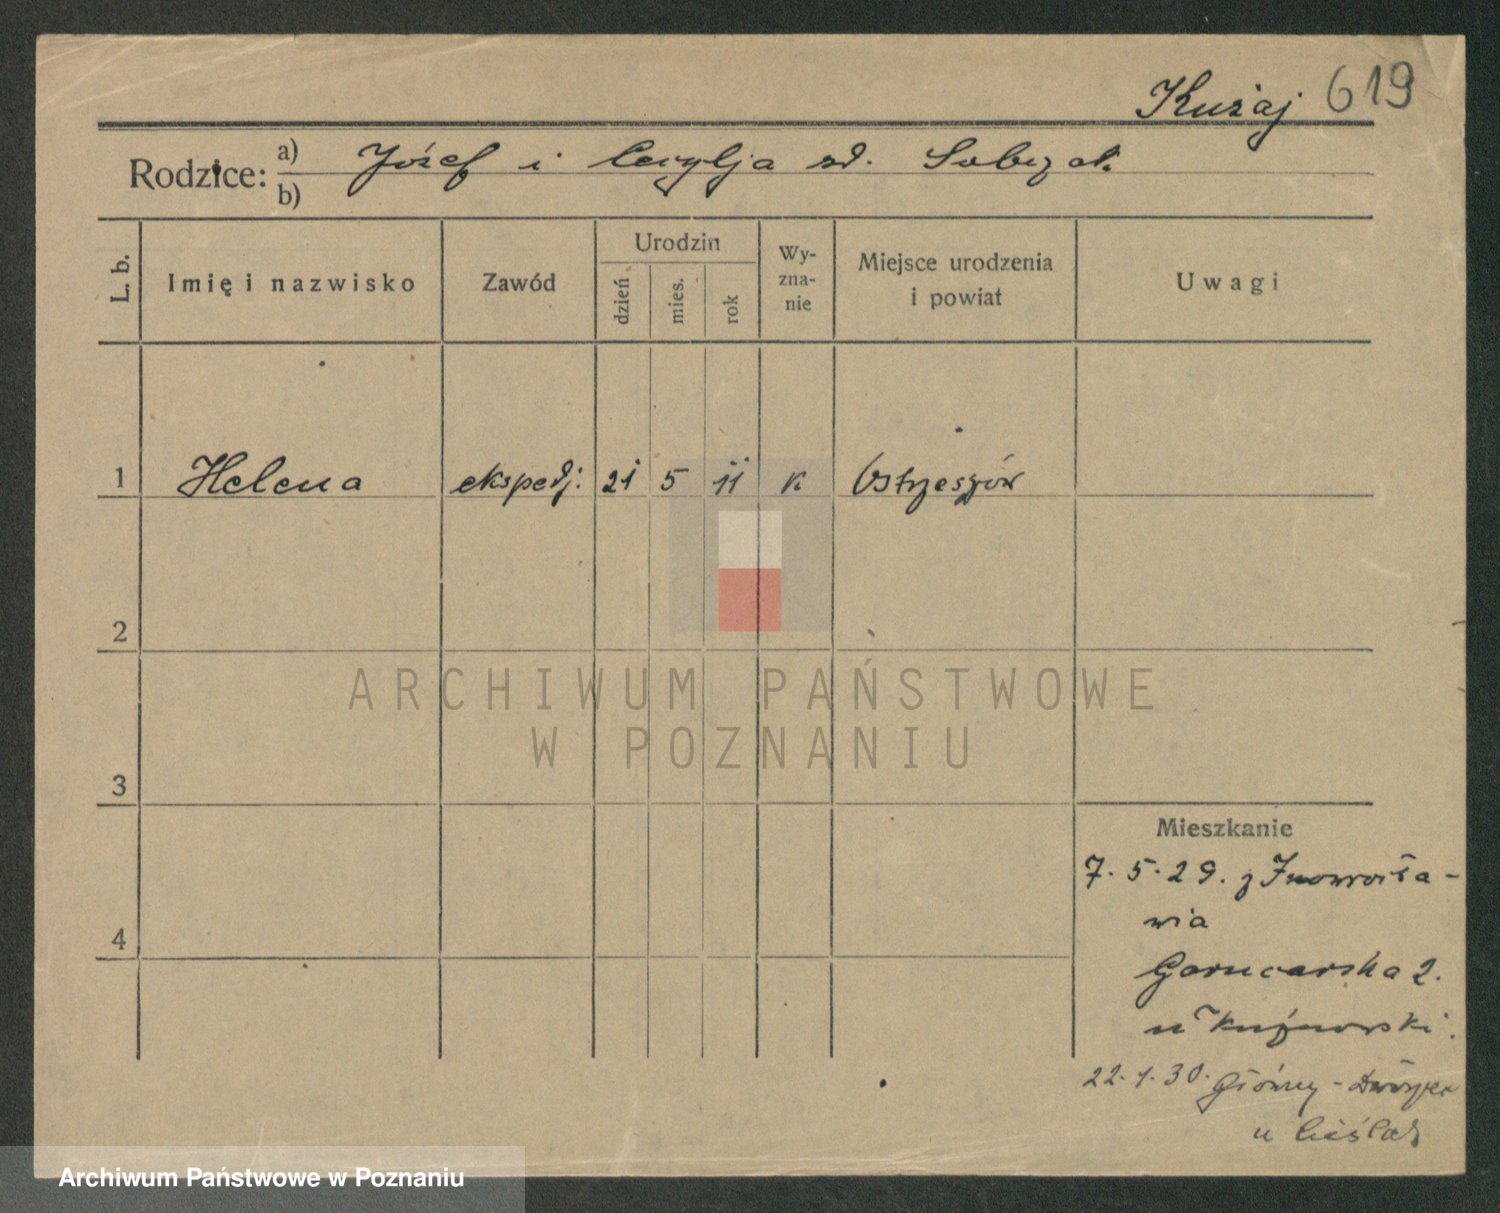 Kużaj 619
Rodzice: a) Józef i Cecylja zd. Sobczak
b)
L. b. Imię i nazwisko Zawód Urodzin dzień mies. rok Wy-zna-nie Miejsce urodzenia i powiat Uwagi
1 Helena ekspedj: 21 5 11 k Ostrzeszów
2
ARCHIWUM PAŃSTWOWE
W POZNANIU
3
Mieszkanie
7. 5. 29. z Inowrocła-
wia
4
Garncarska 2.
u
22. 1. 30. Główny - Dworzec
u Cieślak
Archiwum Państwowe w Poznaniu